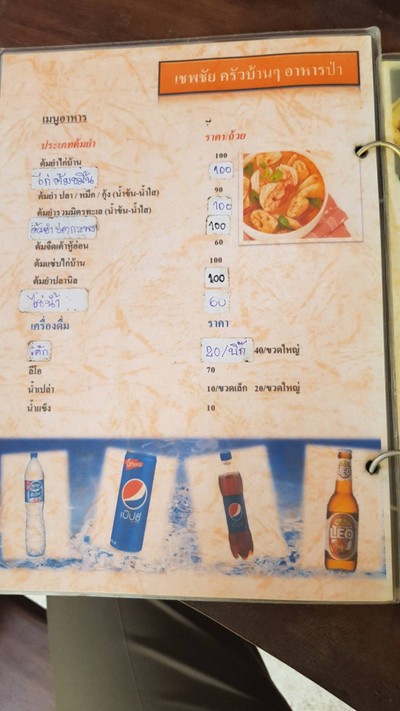 เชพชัย ครัวบ้านๆ อาหารป่า
เมนูอาหาร
ประเภทต้มยำ ราคา/ถ้วย
ต้มยำไก่บ้าน 100
ไก่ต้มขมิ้น 100
ต้มยำ ปลา / หมึก / กุ้ง (น้ำข้น-น้ำใส) 90
ต้มยำรวมมิตรทะเล (น้ำข้น-น้ำใส) 100
100
ต้มจืดเต้าหู้อ่อน 60
ต้มแซ่บไก่บ้าน 100
ต้มยำปลานิล 100
ไข่น้ำ 60
เครื่องดื่ม ราคา
โค้ก 20/ 40/ขวดใหญ่
ลีโอ 70
น้ำเปล่า 10/ขวดเล็ก 20/ขวดใหญ่
น้ำแข็ง 10
เป๊ปซี่
LEO